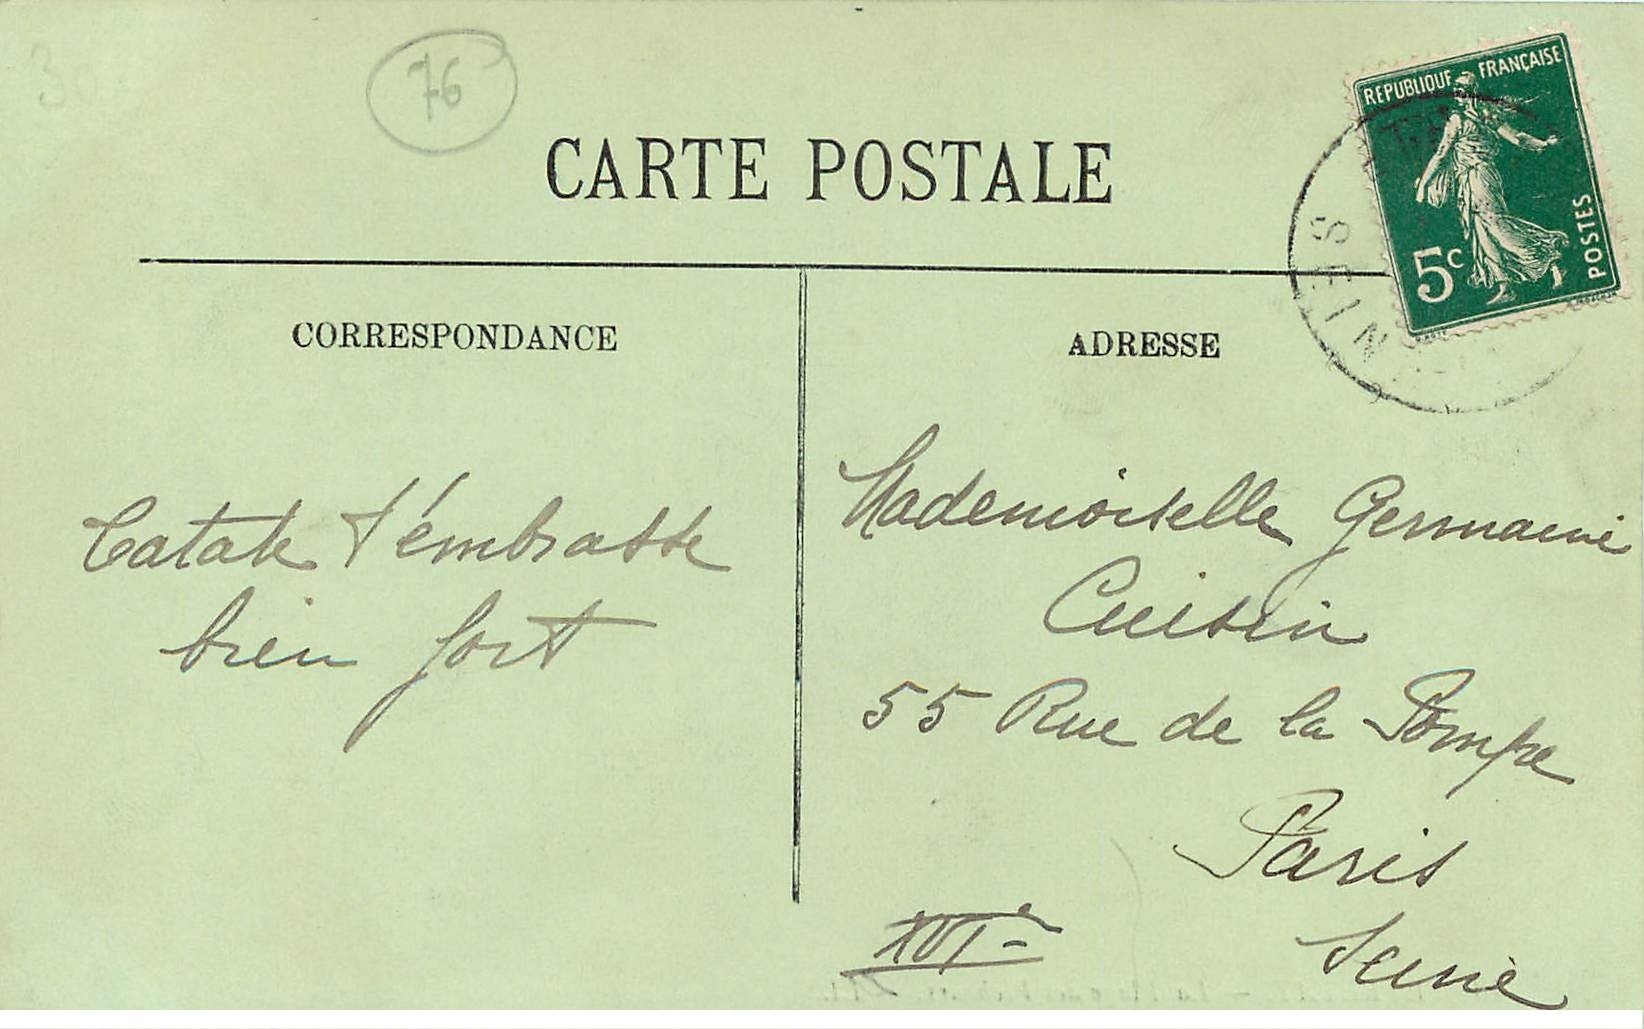 30
76
CARTE POSTALE
REPUBLIQUE FRANÇAISE
5c
POSTES
SEIN
CORRESPONDANCE
ADRESSE
Tatate t'émbrasse
bien fort
Mademoiselle Germaine
Cuisin
55 Rue de la Pompe
Paris
XVIè
Seine